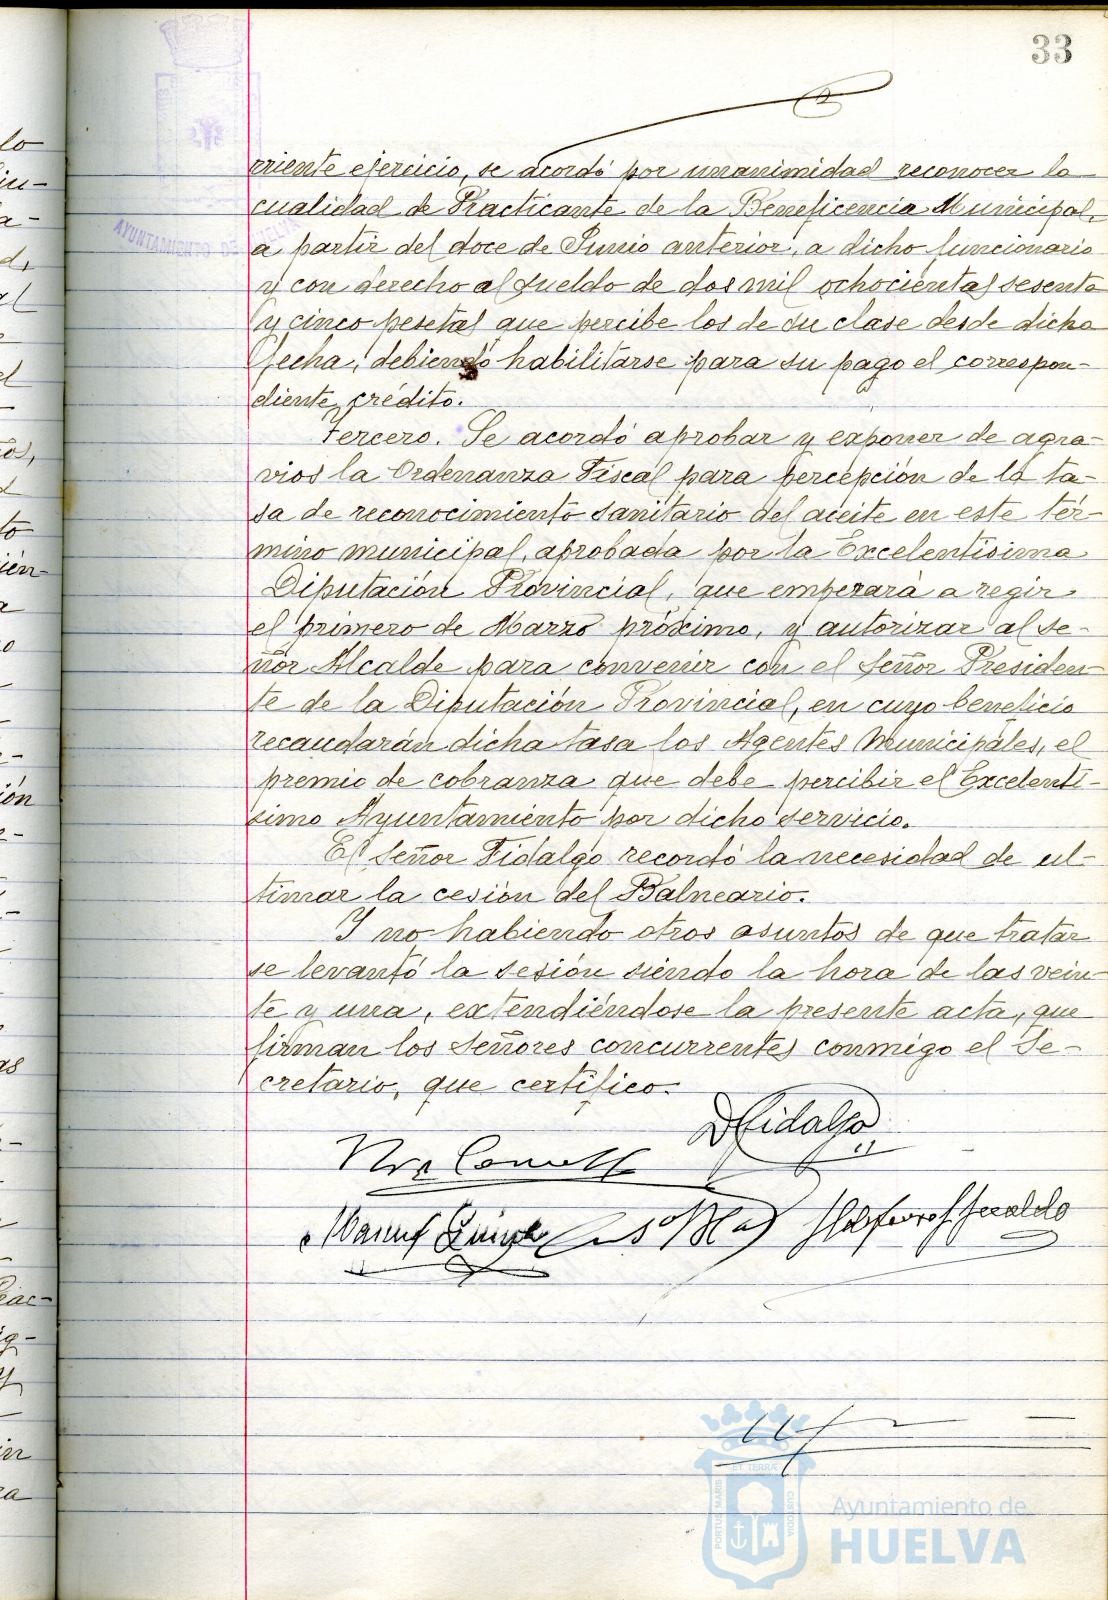 33
rriente ejercicio, se acordó por unanimidad reconocer la
cualidad de Practicante de la Beneficencia Municipal,
a partir del doce de Junio anterior, a dicho funcionario
y con derecho al sueldo de dos mil ochocientas sesenta
y cinco pesetas que percibe los de su clase desde dicha
fecha, debiendo habilitarse para su pago el correspon-
diente crédito.
Tercero. Se acordó aprobar y exponer de agra-
vios la Ordenanza Fiscal para percepción de la ta-
sa de reconocimiento sanitario del aceite en este tér-
mino municipal, aprobada por la Excelentísima
Diputación Provincial, que empezará a regir
el primero de Marzo próximo, y autorizar al Se-
ñor Alcalde para convenir con el Señor Presiden-
te de la Diputación Provincial, en cuyo beneficio
recaudarán dicha tasa los Agentes Municipales, el
premio de cobranza que debe percibir el Excelentí-
simo Ayuntamiento por dicho servicio.
El Señor Fidalgo recordó la necesidad de ul-
timar la cesión del Balneario.
Y no habiendo otros asuntos de que tratar
se levantó la sesión siendo la hora de las vein-
te y una, extendiéndose la presente acta, que
firman los Señores concurrentes conmigo el Se-
cretario, que certifico.
D Fidalgo
AYUNTAMIENTO DE HUELVA
PORTUS MARIS ET TERRAE CUSTODIA
Ayuntamiento de
HUELVA